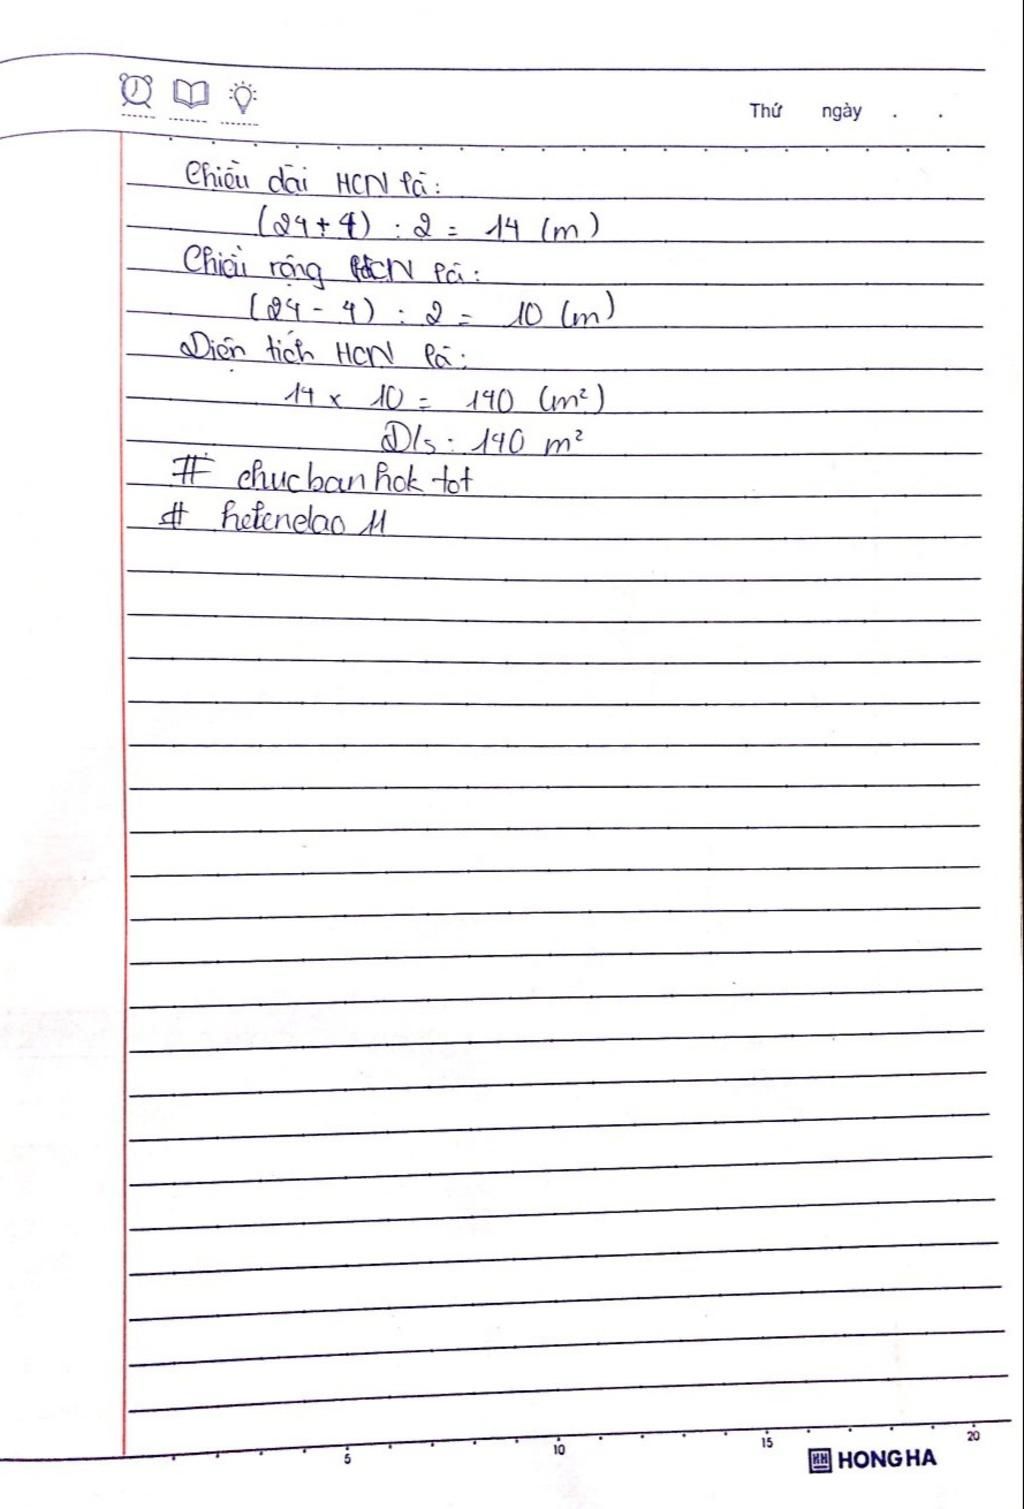 Thứ ngày . .
Chiều dài HCN là:
(24+4) : 2 = 14 (m)
Chiều rộng HCN là:
(24 - 4) : 2 = 10 (m)
Diện tích HCN là:
14 x 10 = 140 (m²)
Đ/s: 140 m²
# chucbanhok tot
# helenelao 11
5 10 15 20
HH HONG HA